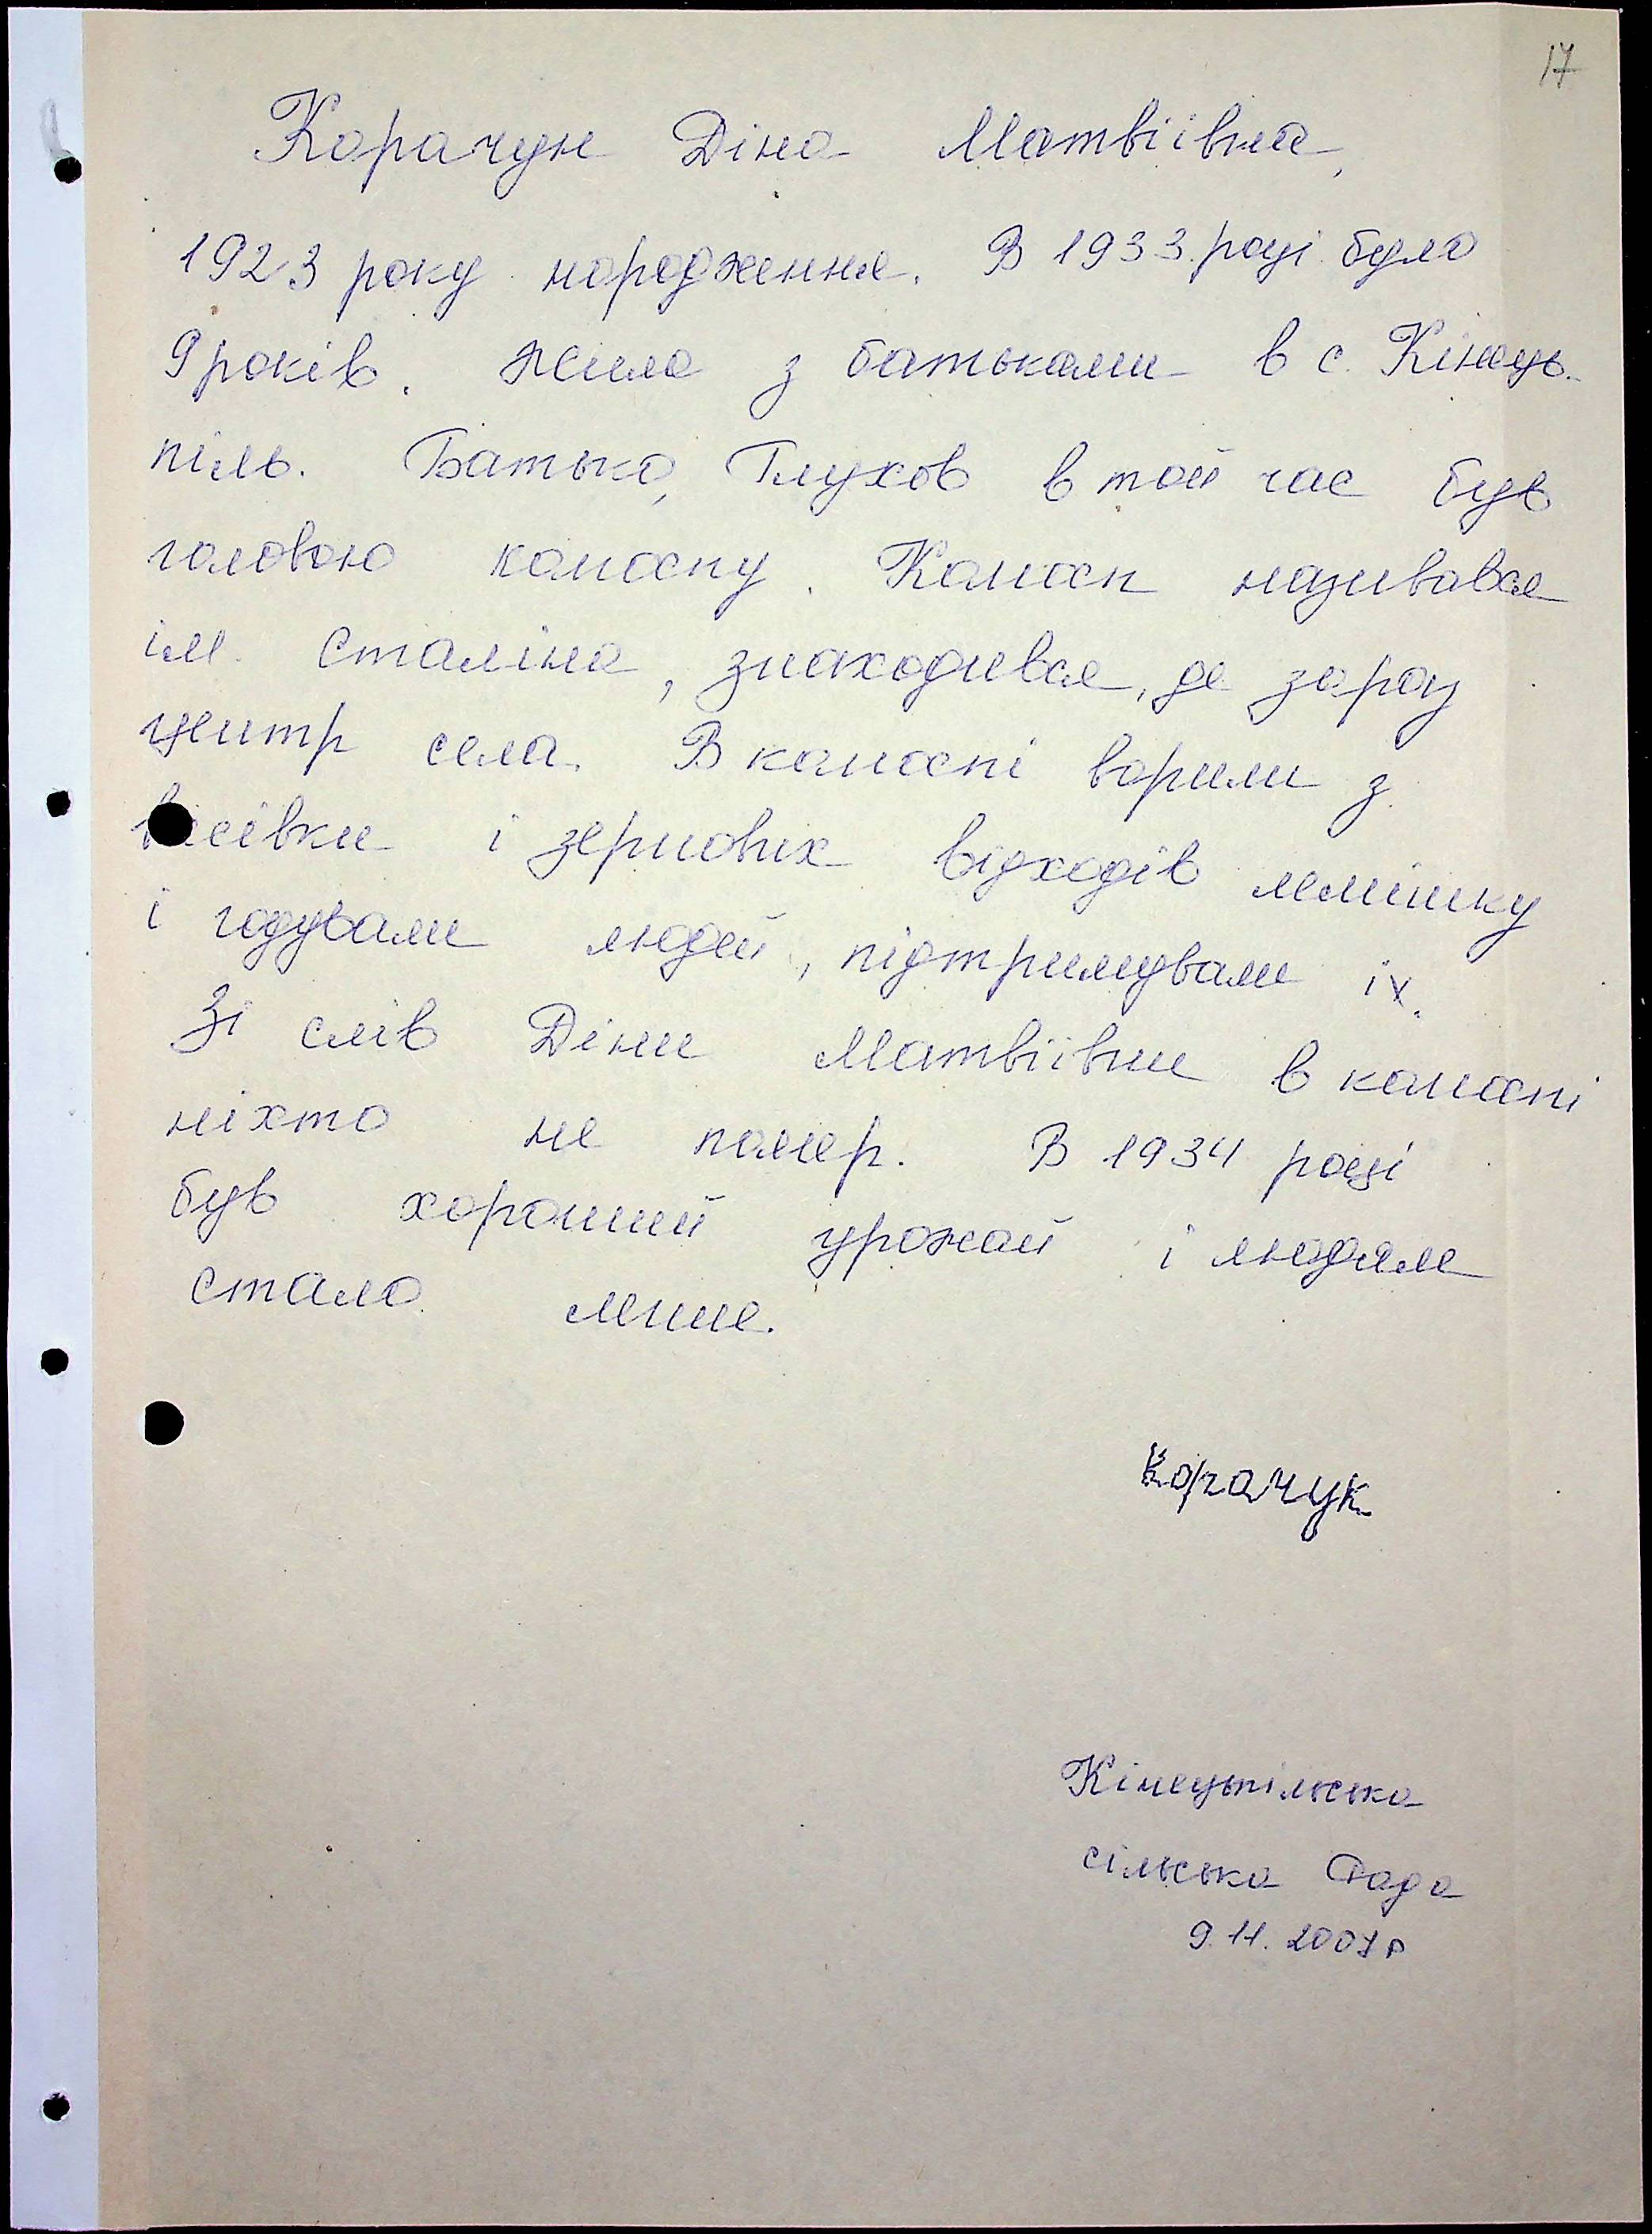 17
Корачун Діна Матвіївна,
1923 року народження. В 1933 році було
9 років. Жила з батьками в с. Кінець-
піль. Батько, Глухов в той час був
головою колгоспу. Колгосп називався
ім. Сталіна, знаходився, де зараз
центр села. В колгоспі варили з
висівки і зернових відходів мамишку
і годували людей, підтримували їх.
Зі слів Діни Матвіївни в колгоспі
ніхто не помер. В 1934 році
був хороший урожай і людям
стало легше.
Корачук
Кінецьпільська
сільська Рада
9.11.2007 р